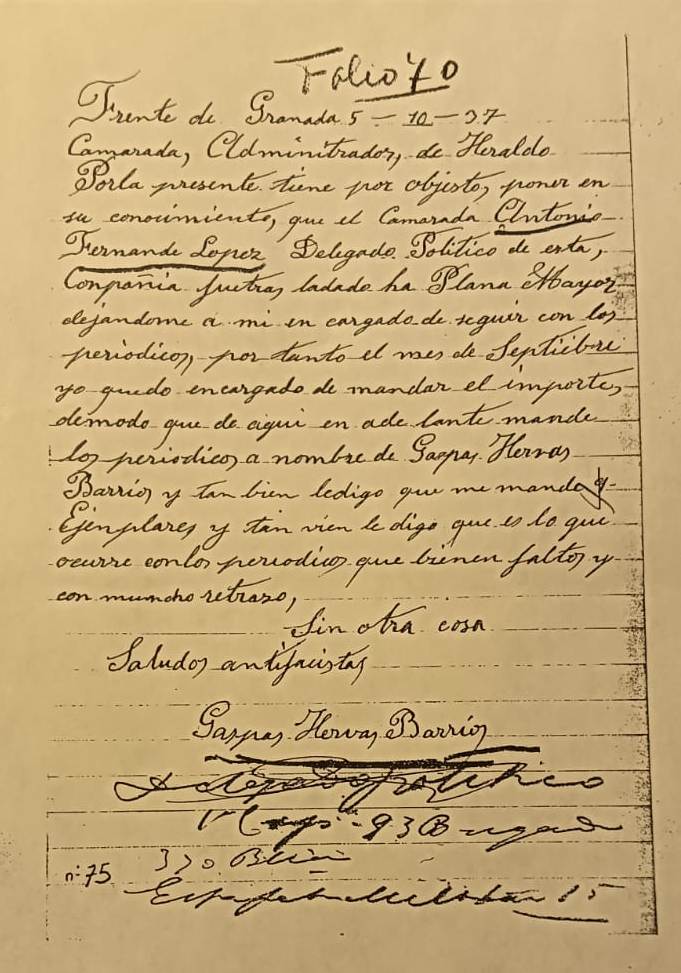 Folio 70
Frente de Granada 5-10-37
Camarada, Adminitrador, de Heraldo
Porla presente tiene por objesto, poner en
su conocimiento, que el Camarada Antonio
Fernande Lopez Delegado Politico de esta,
Conpañia fuetras ladado ha Plana Mayor
dejandome a mi en cargado de seguir con los
periodicos, por tanto el mes de Septiebre
yo quedo encargado de mandar el importe,
demodo que de aqui en ade lante mande
los periodicos a nombre de Gaspas Hervas
Barrios y tan bien ledigo que me mande 9
Ejenplares y tan vien le digo que es lo que
ocurre conlos periodicos que bienen faltos y
con muncho retrazo,
Sin otra cosa
Saludos antifacistas
Gaspas Hervas Barrios
Delegado Politico
93 Brigada
370 Bon
nº 75
15